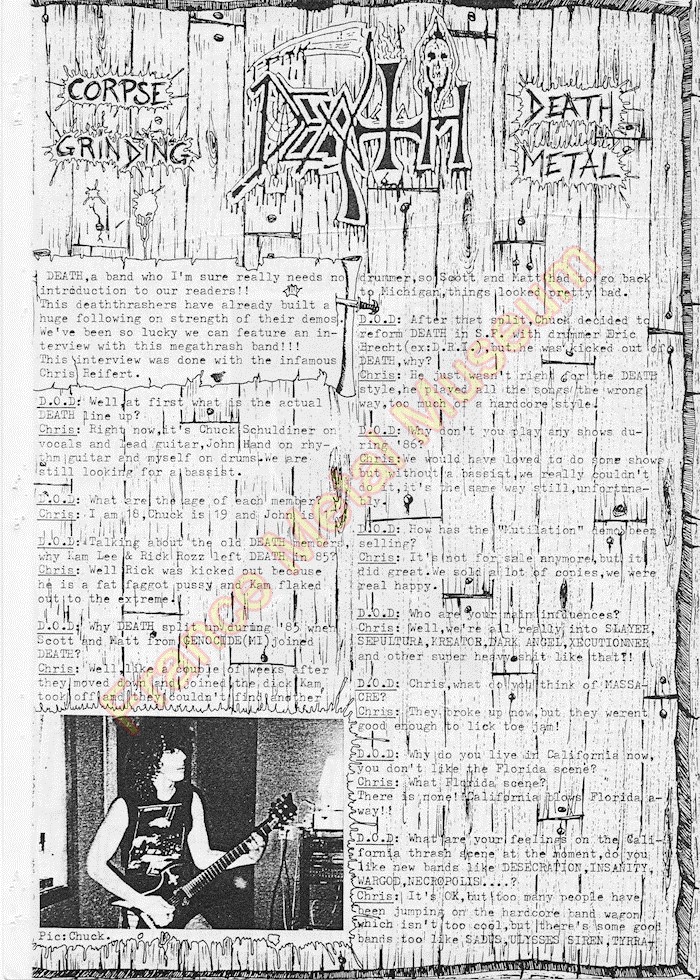 CORPSE
GRINDING
DEATH
DEATH
METAL
DEATH,a band who I'm sure really needs no
introduction to our readers!!
This deaththrashers have already built a
huge following on strength of their demos
We've been so lucky we can feature an in-
terview with this megathrash band!!!
This interview was done with the infamous
Chris Reifert.
D.O.D: Well,at first what is the actual
DEATH line up?
Chris: Right now,it's Chuck Schuldiner on
vocals and lead guitar,John Hand on rhy-
thm guitar and myself on drums.We are
still looking for a bassist.
D.O.D: What are the age of each member?
Chris: I am 18,Chuck is 19 and John
D.O.D: Talking about the old DEATH members,
why Kam Lee & Rick Rozz left DEATH in 85?
Chris: Well Rick was kicked out because
he is a fat faggot pussy and Kam flaked
out to the extreme!
D.O.D: Why DEATH split up during '85 when
Scott and Matt from GENOCIDE(MI)joined
DEATH?
Chris: Well like a couple of weeks after
they moved down and joined,the dick Kam
took off and they couldn't find another
Pic:Chuck.
drummer,so Scott and Matt had to go back
to Michigan,things looked pretty bad.
D.O.D: After that split,Chuck decided to
reform DEATH in S.F. with drummer Eric
Brecht(ex:D.R.I.) but he was kicked out of
DEATH,why?
Chris: He just wasn't right for the DEATH
style,he played all the songs the wrong
way,too much of a hardcore style!
D.O.D: Why don't you play any shows du-
ring '86?
Chris:We would have loved to do some shows
but without a bassist,we really couldn't
it,it's the same way still,unfortuna-
ly.
D.O.D: How has the "Mutilation" demo been
selling?
Chris: It's not for sale anymore,but it
did great.We sold a lot of copies,we were
real happy.
D.O.D: Who are your main influences?
Chris: Well,we're all really into SLAYER,
SEPULTURA,KREATOR,DARK ANGEL,XECUTIONNER
and other super heavy shit like that!!
D.O.D: Chris,what do you think of MASSA-
CRE?
Chris: They broke up now,but they werent
good enough to lick toe jam!
D.O.D: Why do you live in California now,
you don't like the Florida scene?
Chris: What Florida scene?
There is none!!California blows Florida a-
way!!
D.O.D: What are your feelings on the Cali-
fornia thrash scene at the moment,do you
like new bands like DESECRATION,INSANITY,
WARGOD,NECROPOLIS....?
Chris: It's OK,but too many people have
been jumping on the hardcore band wagon
which isn't too cool,but there's some good
bands too like SADUS,ULYSSES SIREN,TYRRA-
France Metal Museum